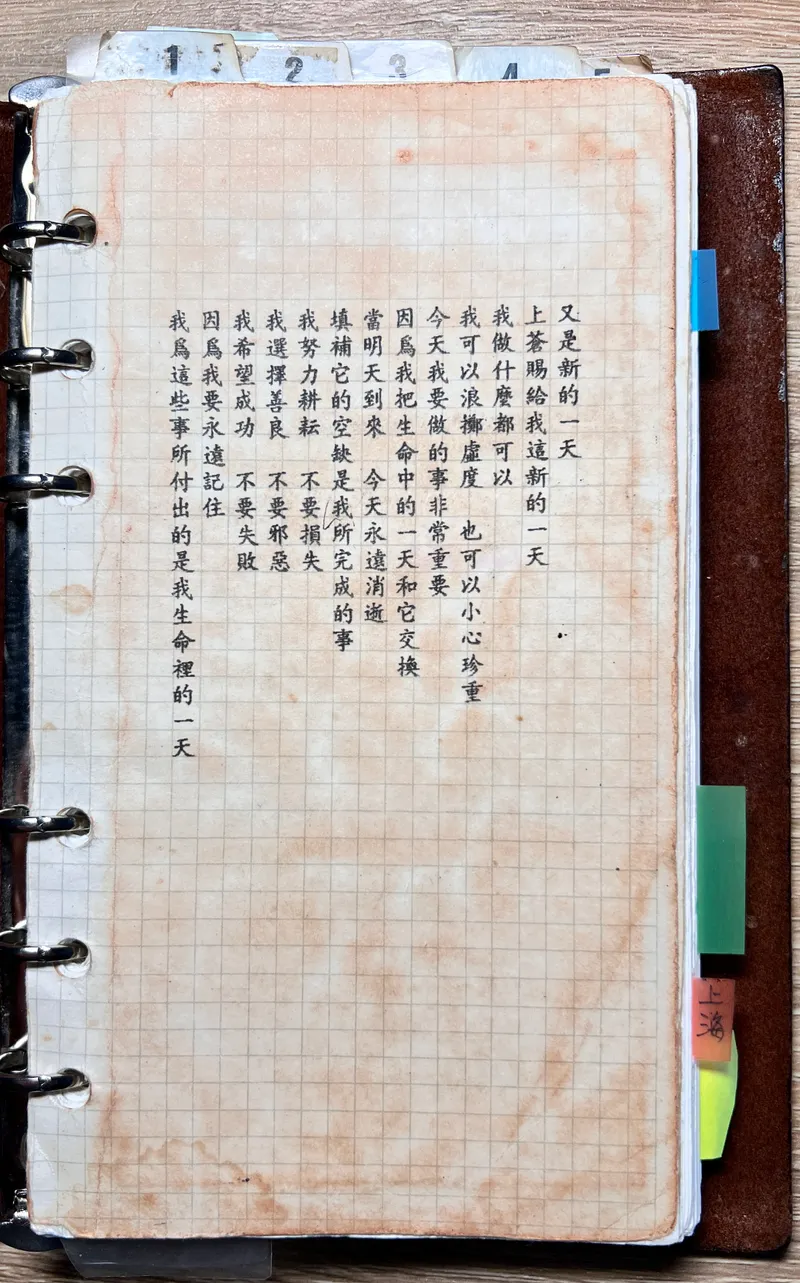 1
2
3
4
5
又是新的一天
上蒼賜給我這新的一天
我做什麼都可以
我可以浪擲虛度 也可以小心珍重
今天我要做的事非常重要
因爲我把生命中的一天和它交換
當明天到來 今天永遠消逝
填補它的空缺是我所完成的事
我努力耕耘 不要損失
我選擇善良 不要邪惡
我希望成功 不要失敗
因爲我要永遠記住
我爲這些事所付出的是我生命裡的一天
上海